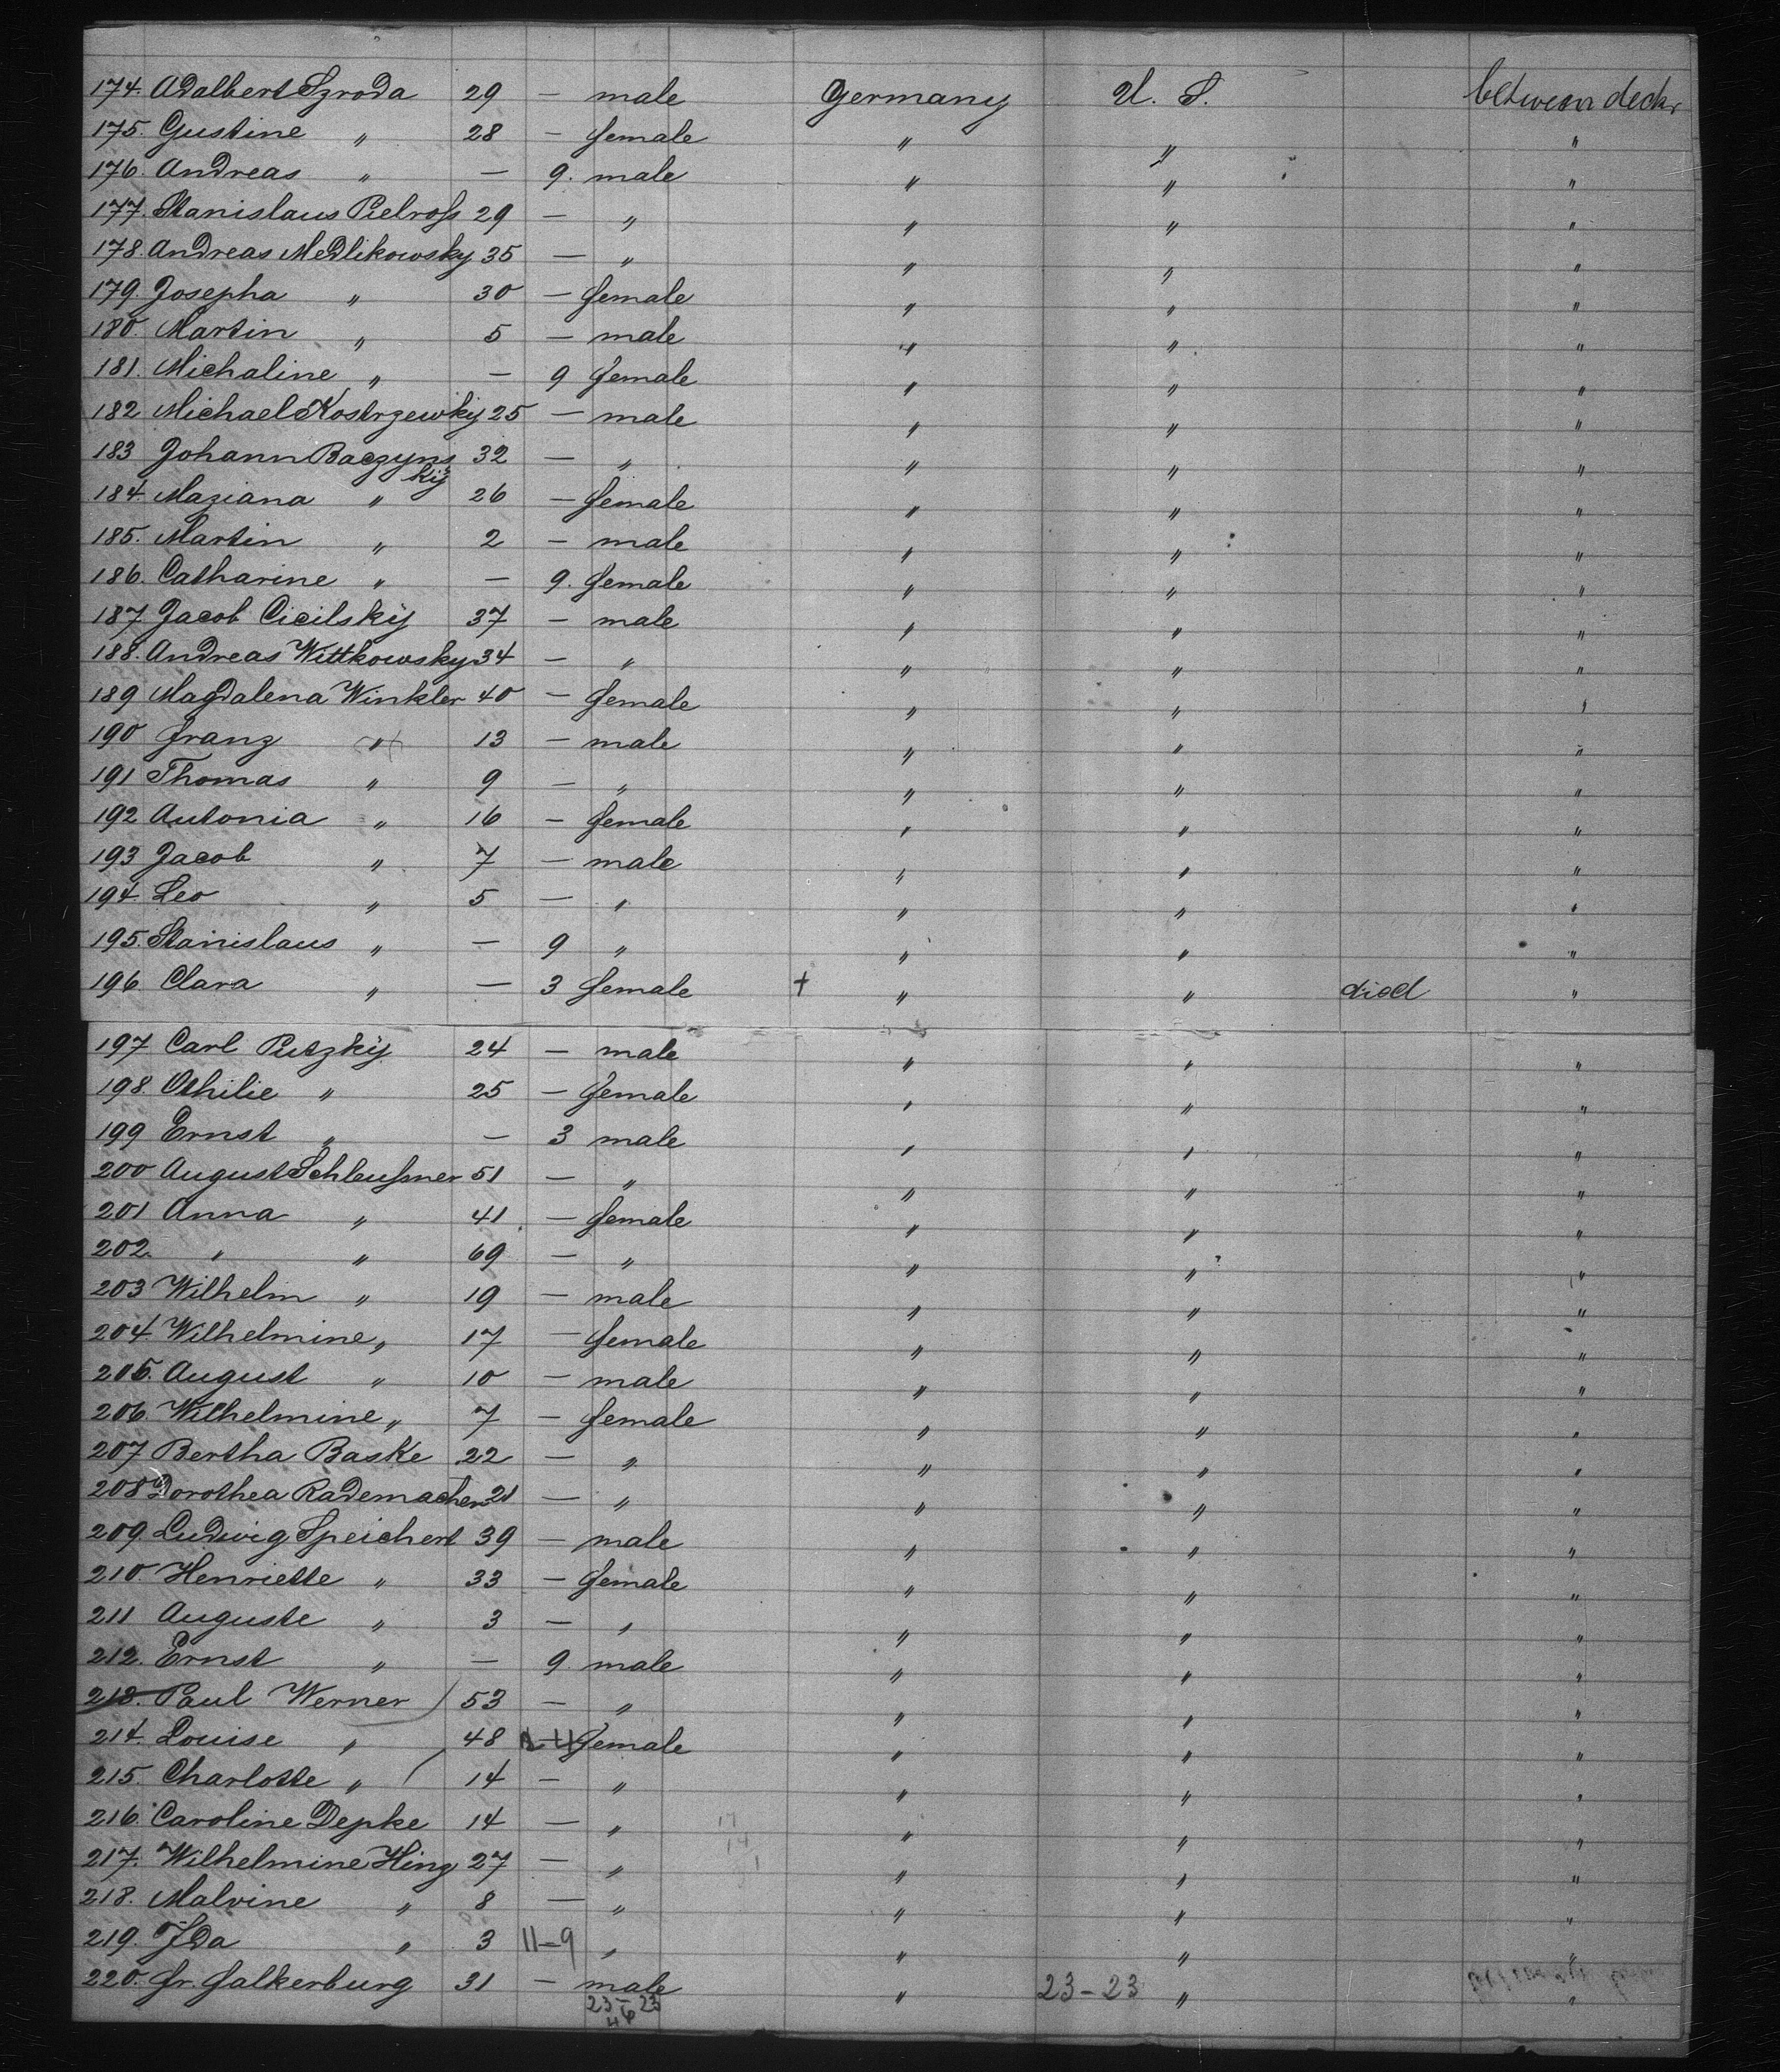 174. Adalbert Szroda 29 — male Germany U. S. between decks
175. Gustine " 28 — female " " "
176. Andreas " — 9. male " " "
177. Stanislaus Pielroß 29 — " " " "
178. Andreas Medlikowsky 35 — " " " "
179. Josepha " 30 — female " " "
180. Martin " 5 — male " " "
181. Michaline " — 9 female " " "
182 Michael Kostrzewky 25 — male " " "
183 Johann Baczynsky 32 — " " " "
184. Maziana " 26 — female " " "
185. Martin " 2 — male " " "
186. Catharine " — 9. female " " "
187 Jacob Cicilsky 37 — male " " "
188. Andreas Wittkowsky 34 — " " " "
189 Magdalena Winkler 40 — female " " "
190 Franz " 13 — male " " "
191 Thomas " 9 — " " " "
192 Antonia " 16 — female " " "
193 Jacob " 7 — male " " "
194. Leo " 5 — " " " "
195. Stanislaus " — 9 " " " "
196 Clara " — 3 female + " " died "
197 Carl Putzky 24 — male " " "
198. Othilie " 25 — female " " "
199 Ernst " — 3 male " " "
200 August Schleußner 51 — " " " "
201 Anna " 41 — female " " "
202. " " 69 — " " " "
203 Wilhelm " 19 — male " " "
204. Wilhelmine " 17 — female " " "
205. August " 10 — male " " "
206. Wilhelmine " 7 — female " " "
207 Bertha Baske 22 — " " " "
208 Dorothea Rademacher 21 — " " " "
209. Ludwig Speichert 39 — male " " "
210. Henriette " 33 — female " " "
211 Auguste " 3 — " " " "
212. Ernst " — 9 male " " "
213. Paul Werner 53 — " " " "
214. Louise " 48 — female " " "
215. Charlotte " 14 — " " " "
216. Caroline Depke 14 — " " " "
217. Wilhelmine Hing 27 — " " " "
218. Malvine " 8 — " " " "
219. Ida " 3 11-9 " " " "
220. Fr. Falkerburg 31 — male " 23-23 " "
23-23
46